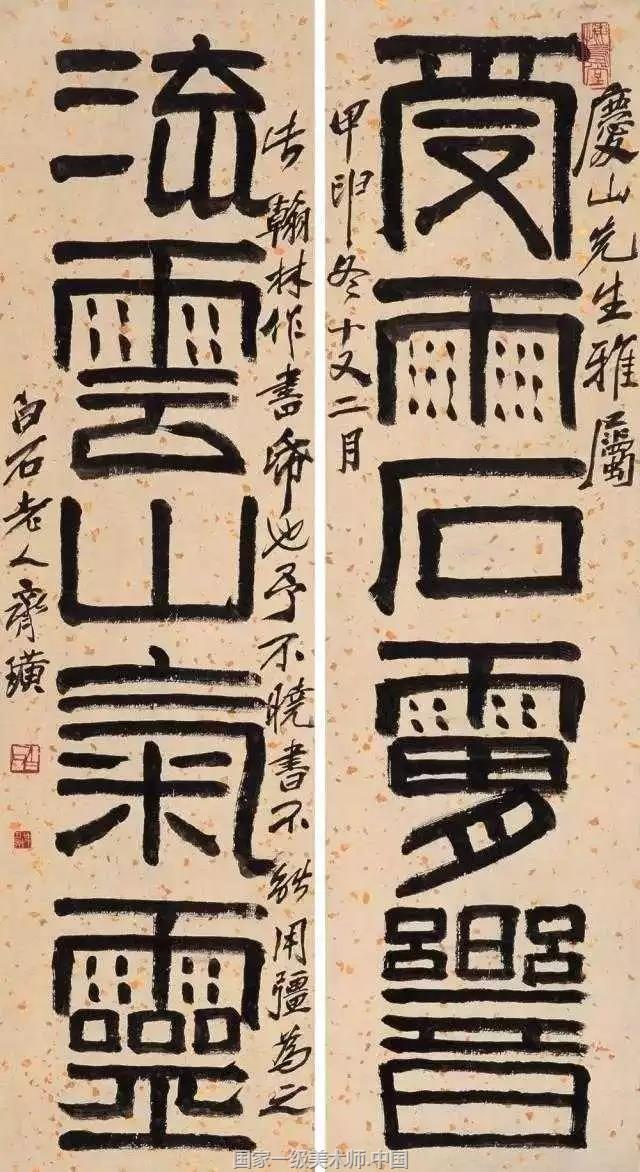 慶山先生雅屬
受雨石響
甲申冬十又二月
翰林作書也予不曉書不能用彊為之
流雲山氣靈
白石老人齊璜
国家一级美术师.中国